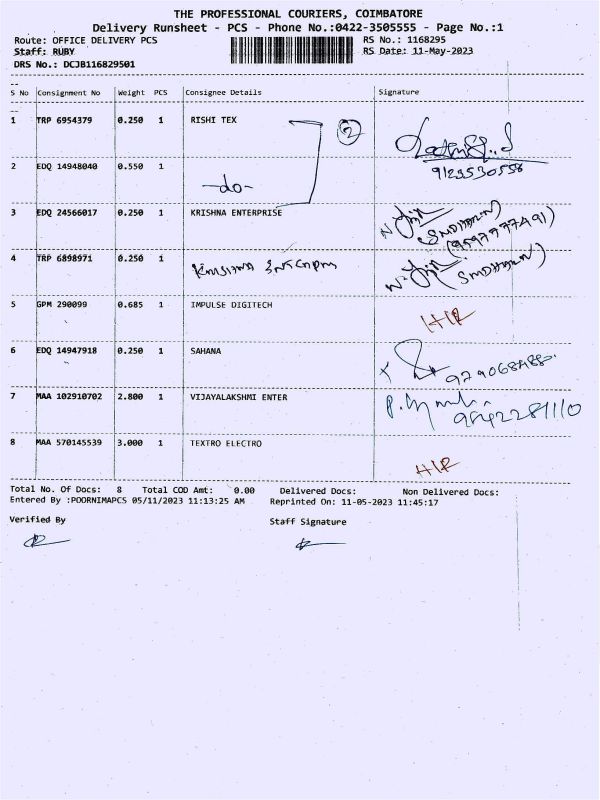 THE PROFESSIONAL COURIERS, COIMBATORE
Delivery Runsheet - PCS - Phone No.:0422-3505555 - Page No.:1
Route: OFFICE DELIVERY PCS RS No.: 1168295
Staff: RUBY RS Date: 11-May-2023
DRS No.: DCJB116829501
S No Consignment No Weight PCS Consignee Details Signature
1 TRP 6954379 0.250 1 RISHI TEX 2
2 EDQ 14948040 0.550 1 -do-
3 EDQ 24566017 0.250 1 KRISHNA ENTERPRISE
4 TRP 6898971 0.250 1
5 GPM 290099 0.685 1 IMPULSE DIGITECH
6 EDQ 14947918 0.250 1 SAHANA
7 MAA 102910702 2.800 1 VIJAYALAKSHMI ENTER 9842281110
8 MAA 570145539 3.000 1 TEXTRO ELECTRO
Total No. Of Docs: 8 Total COD Amt: 0.00 Delivered Docs: Non Delivered Docs:
Entered By :POORNIMAPCS 05/11/2023 11:13:25 AM Reprinted On: 11-05-2023 11:45:17
Verified By Staff Signature